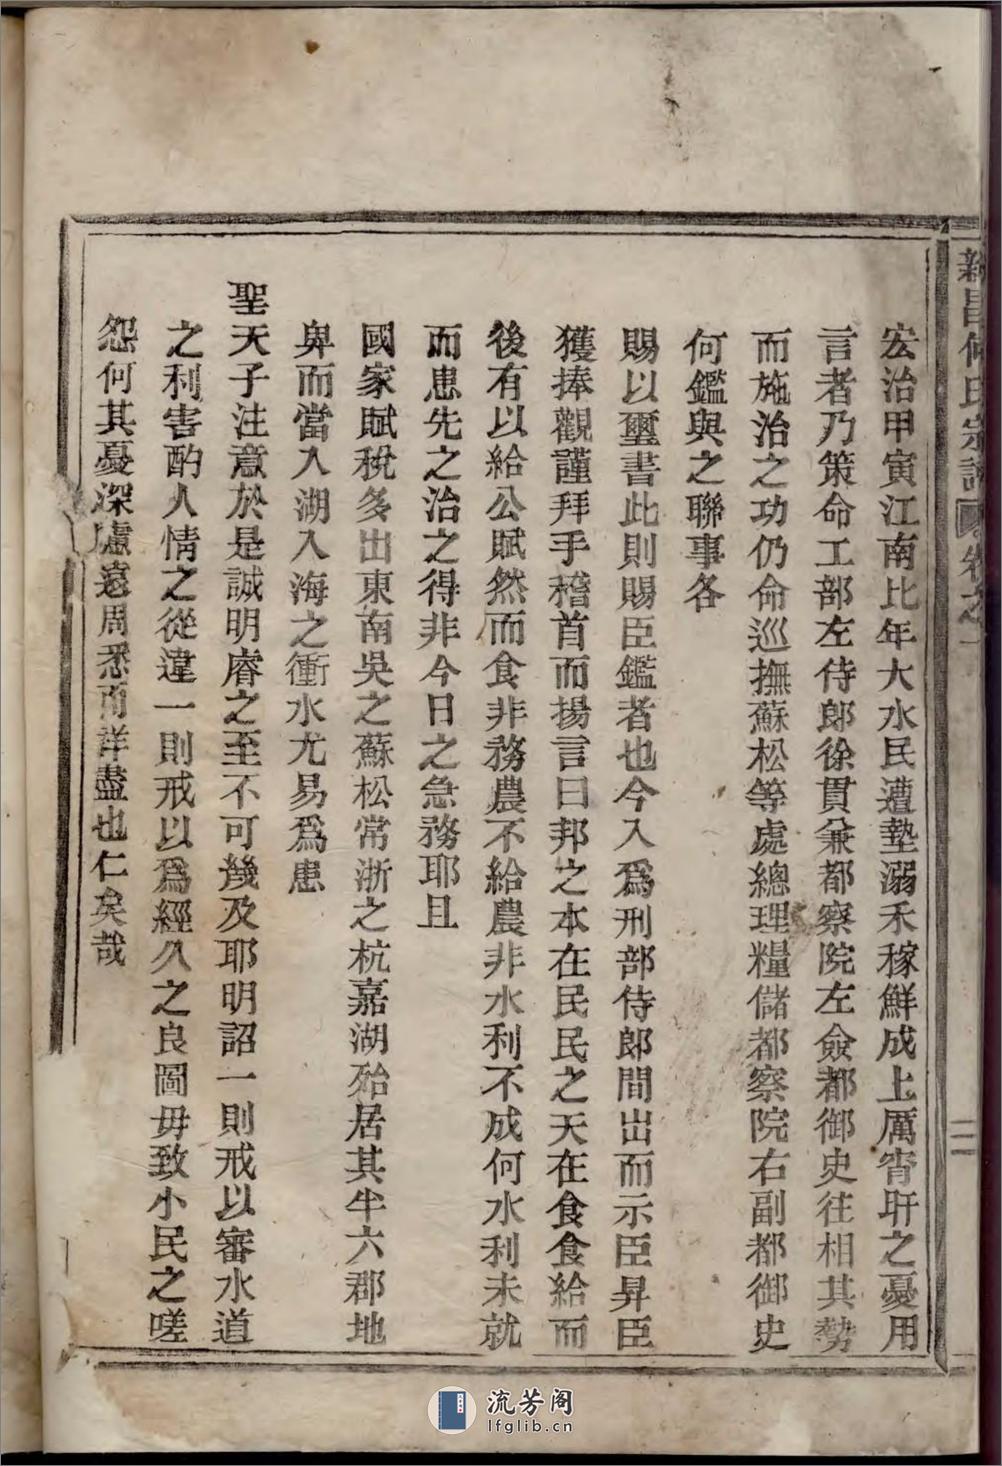 新昌何氏宗譜 卷之一
二
宏治甲寅江南比年大水民遭墊溺禾稼鮮成上厲宵旰之憂用
言者乃策命工部左侍郎徐貫兼都察院左僉都御史往相其勢
而施治之功仍命巡撫蘇松等處總理糧儲都察院右副都御史
何鑑與之聯事各
賜以璽書此則賜臣鑑者也今入爲刑部侍郎間出而示臣昇臣
獲捧觀謹拜手稽首而揚言曰邦之本在民民之天在食食給而
後有以給公賦然而食非務農不給農非水利不成何水利未就
而患先之治之得非今日之急務耶且
國家賦稅多出東南吳之蘇松常浙之杭嘉湖殆居其半六郡地
卑而當入湖入海之衝水尤易爲患
聖天子注意於是誠明睿之至不可幾及耶明詔一則戒以審水道
之利害酌人情之從違一則戒以爲經久之良圖毋致小民之嗟
怨何其憂深慮遠周悉而詳盡也仁矣哉
流芳阁
lfglib.cn